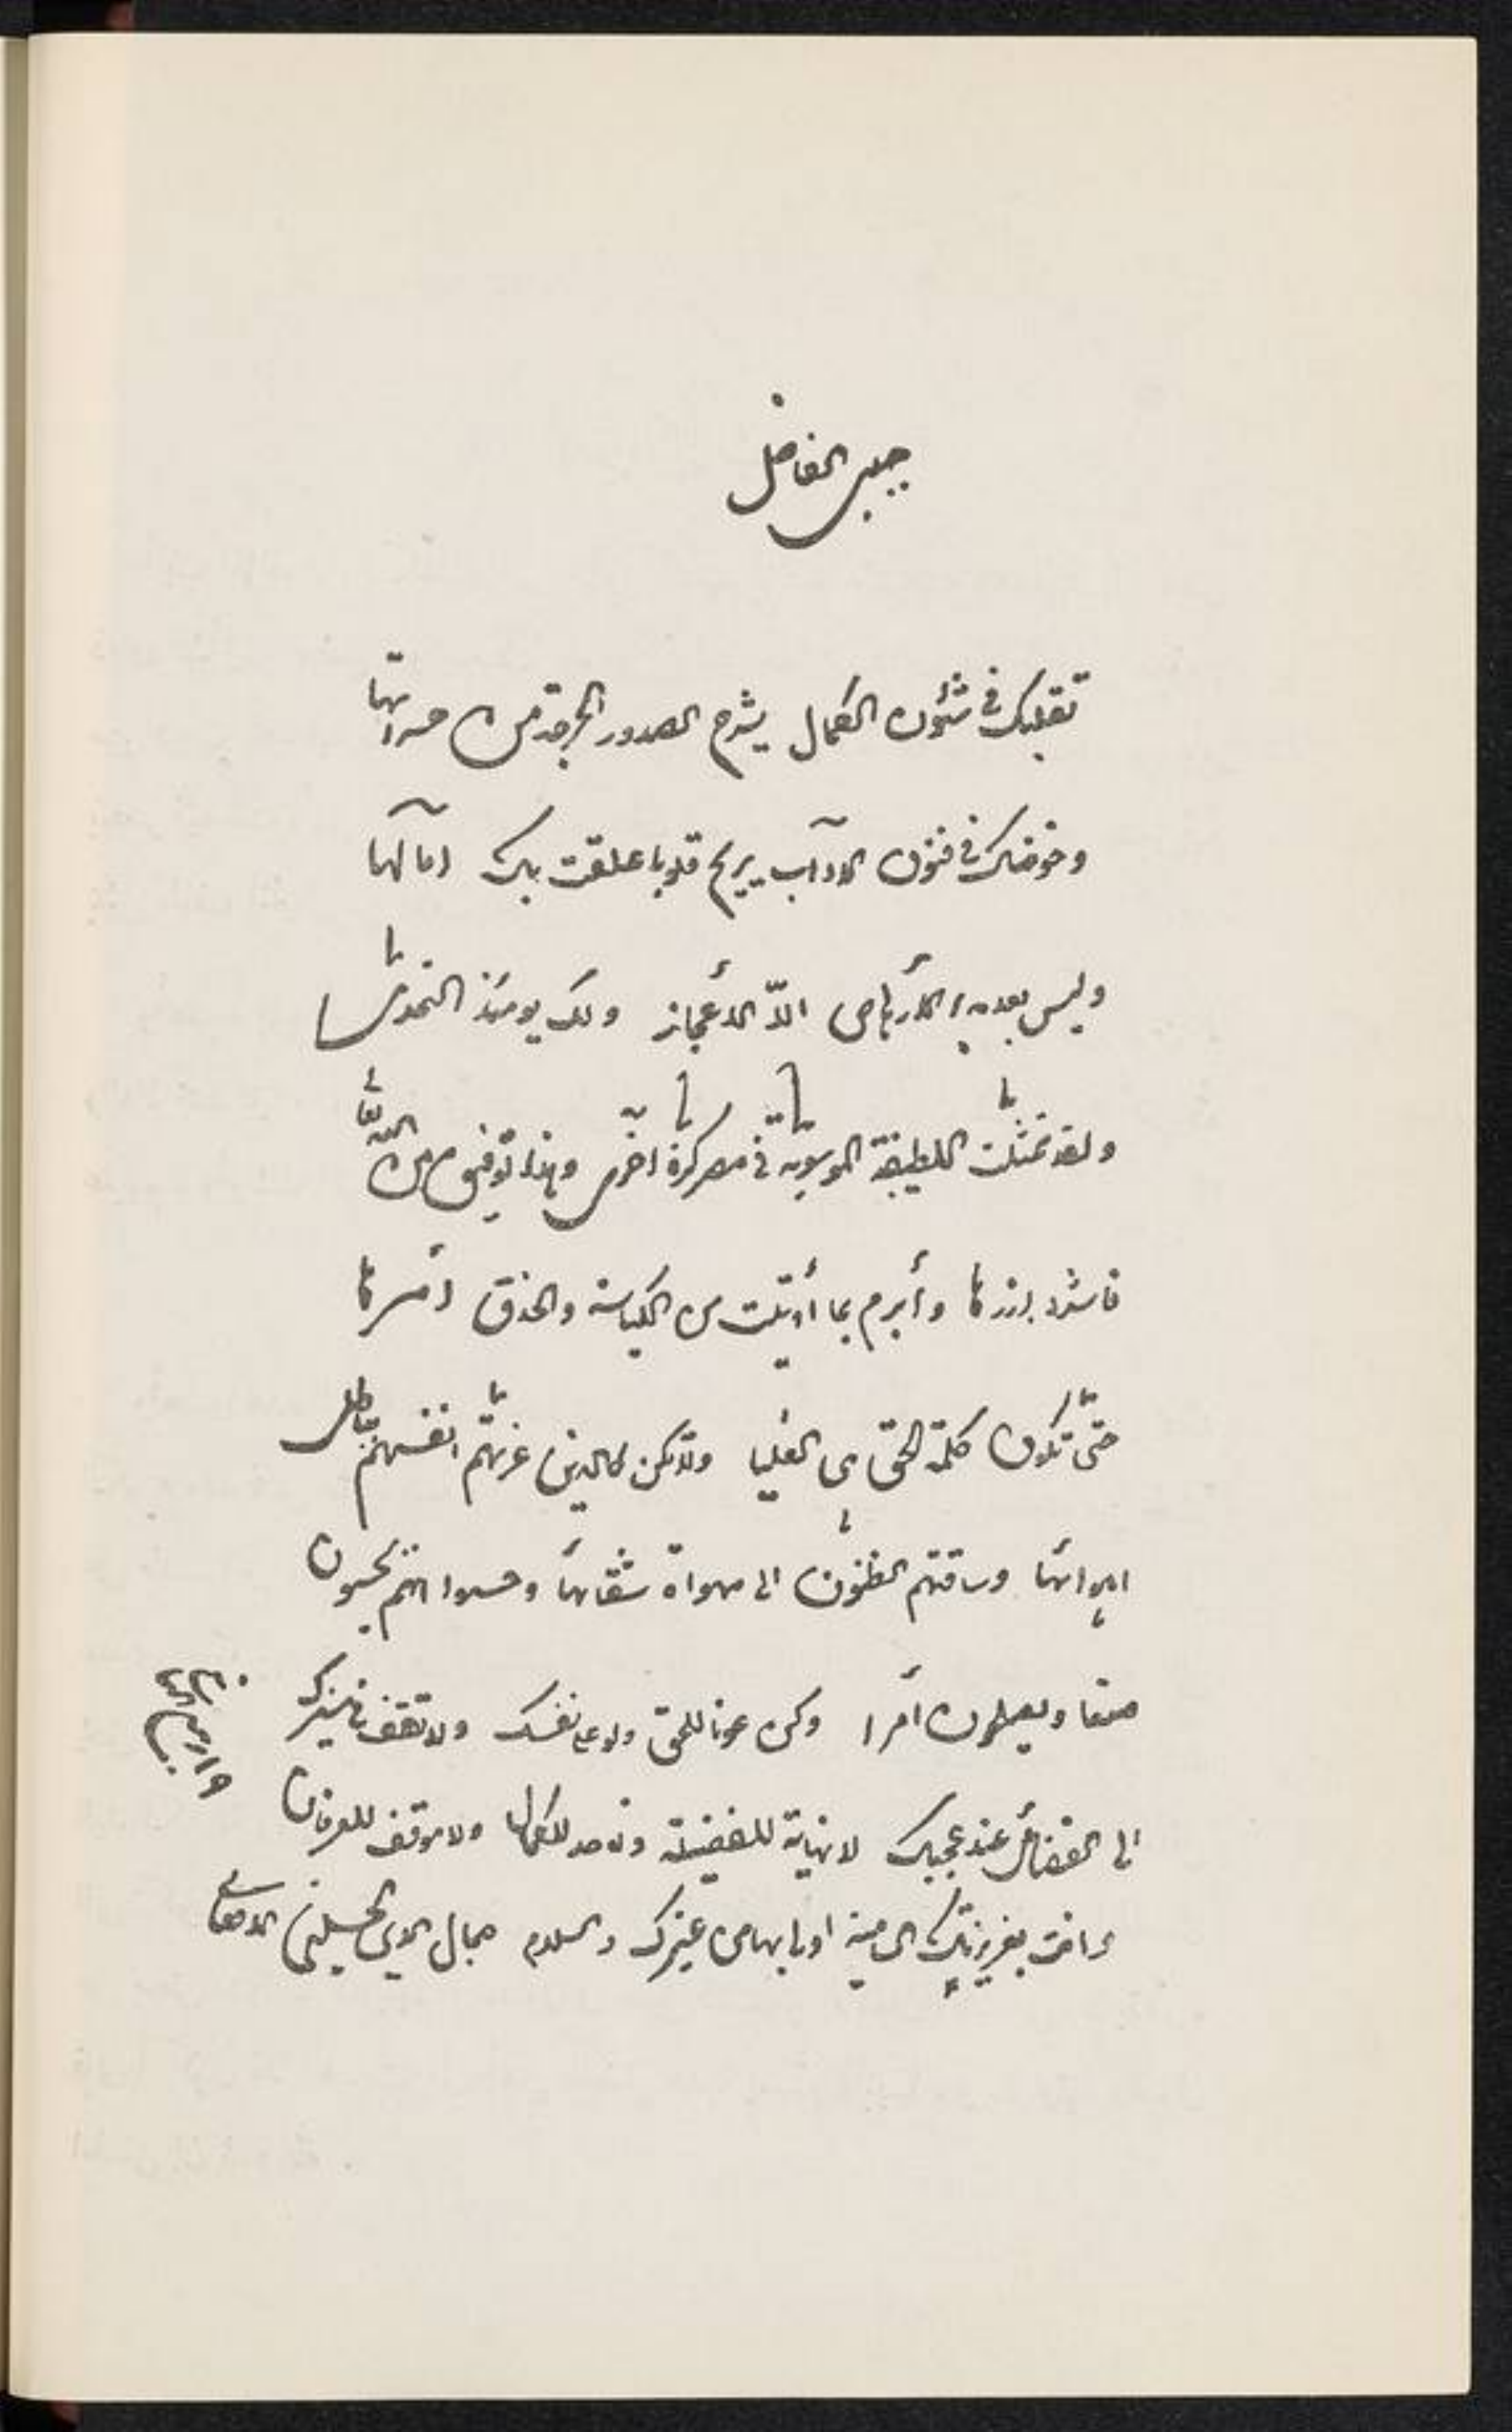 حبيبى الفاضل
تقلبك فى شئون الكمال يشرح الصدور الحرجة من حسراتها
وخوضك فى فنون الآداب يريح قلوبا علقت بك آمالها
وليس بعد الأرهاص الاّ الأعجاز ولك يومئذ التحدى بها
ولقد تمثلت اللطيفة الموسوية فى مصر كرة اخرى وهذا توفيق من الله تعالى
فاشدد ازرها وأبرم بما أوتيت من الكياسة والحذق أمرها
حتى تكون كلمة الحق هى العليا ولا تكن كالذين غرتهم انفسهم بباطل
اهوائها وساقتهم الظنون الى مهواة شقائها وحسبوا انهم يحسنون
صنعا ويصلحون أمرا وكن عونا للحق ولو على نفسك ولا تقف فى سيرك
الى الفضائل عند عجبك لا نهاية للفضيلة ولا حد للكمال ولا موقف للعرفان
وانت بغريزتك السامية اولى بها من غيرك والسلام جمال الدين الحسينى الافغانى